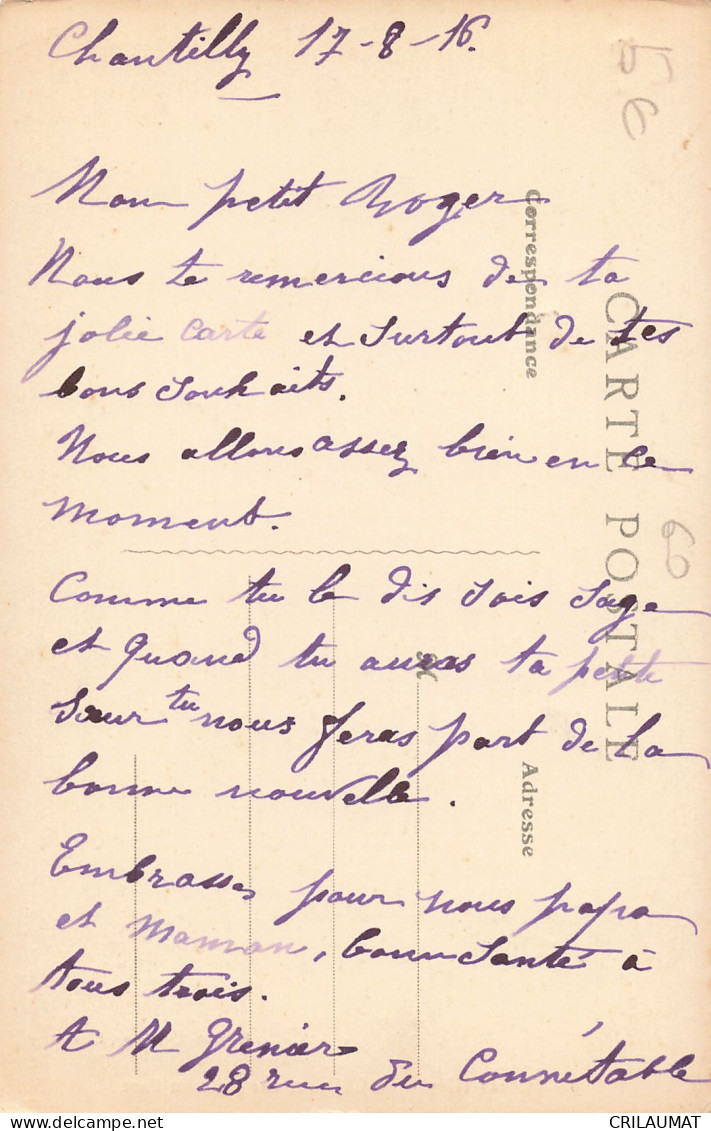 Chantilly 17-8-16.
5€
Mon petit Roger
Nous te remercions de ta
jolie carte et surtout de tes
bons souhaits.
Nous allons assez bien en ce
moment.
Comme tu le dis sois sage
et quand tu auras ta petite
sœur tu nous feras part de la
bonne nouvelle.
Embrasse pour nous papa
et Maman, bonne santé à
tous trois.
A M Grenier
28 rue du Connétable
Correspondance
CARTE POSTALE
60
M
Adresse
delcampe.net
CRILAUMAT